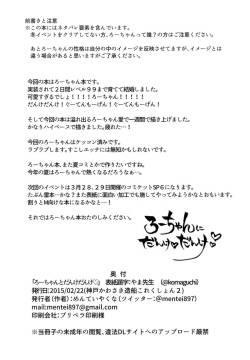 前書きと注意
※この本にはネタバレ要素を含んでいます。
冬イベントをクリアしてない方、ろーちゃんって誰？の方はご注意ください。
あとろーちゃんの性格は自分の中のイメージを反映させてますが、イメージとは
違う場合があると思いますがご了承ください。
今回の本はろーちゃん本です。
実装されて２日間レベル９９まで育てて結婚しました。
可愛すぎるでしょ！！！！！ろーちゃん！！！！！
だんけだんけ！ぐーてんもーげん！ぐーてんもーげん！
そして今回の本は溢れ出るろーちゃん愛で一週間で描き上げました
かなりハイペースで描けました。疲れたー！
今回の本はケッコン済みのろーちゃんです。
ラブラブします。すこしエッチには無知かもしれないです。
ろーちゃん本、また夏コミとかで作りたいですね。
今年の夏はろーちゃんで熱くなるだろうなぁー。
次回のイベントは３月２８、２９日開催のコミケットSP6になります。
それではろーちゃん本お楽しみください。
ろーちゃんに
だんけ♡だんけ♡
奥 付
「ろーちゃんとだんけだんけ♡」 表紙題字：やま先生 （@komaguchi）
発行日:2015/02/22(神戸かわさき造船これくしょん２)
発行者(作者):めんていやくな(ツイッター:@mentei897)
mail:mentei897@gmail.com
印刷会社:プリペラ印刷様
※当冊子の未成年の閲覧、違法DLサイトへのアップロード厳禁